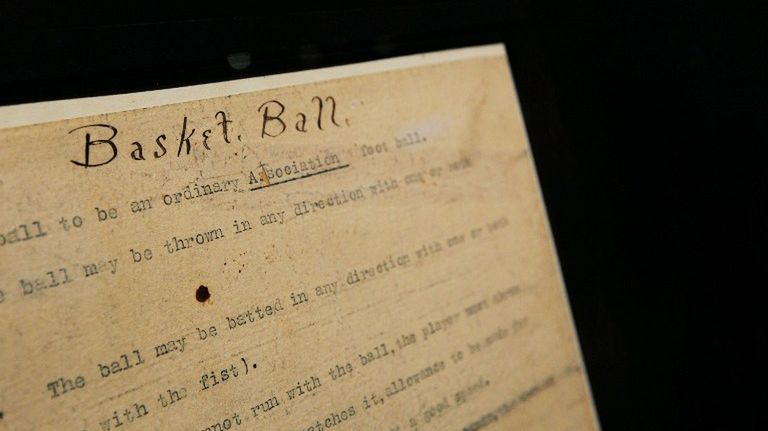 Basket. Ball.
ball to be an ordinary Association foot ball.
ball may be thrown in any direction with one or both
The ball may be batted in any direction with one or both
with the fist).
not run with the ball, the player must throw
catches it, allowance to be made for
a good speed.